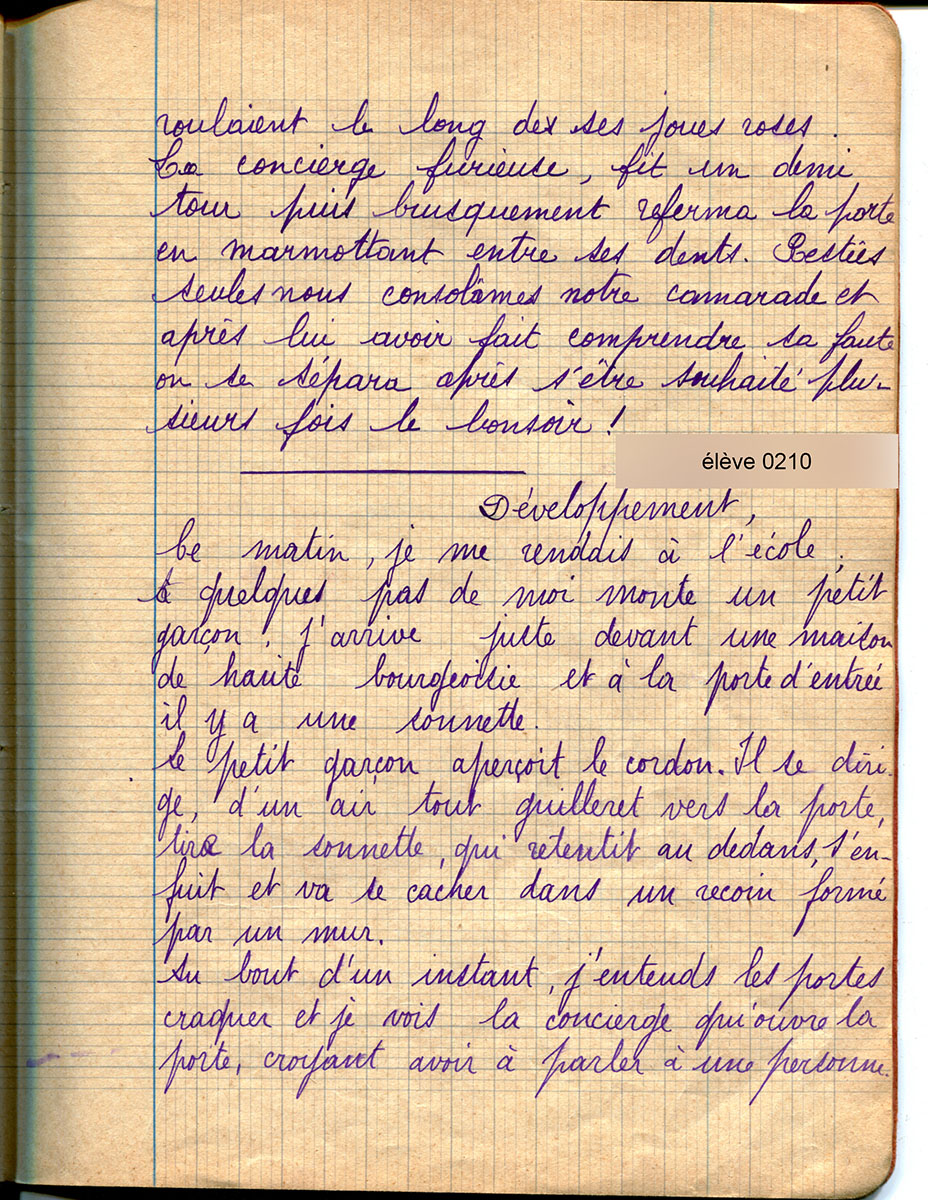 roulaient le long de ses joues roses.
La concierge furieuse, fit un demi
tour puis brusquement referma la porte
en marmottant entre ses dents. Restées
seules nous consolâmes notre camarade et
après lui avoir fait comprendre sa faute
on se sépara après s'être souhaité plu-
sieurs fois le bonsoir !
élève 0210
Développement,
Ce matin, je me rendais à l'école.
A quelques pas de moi monte un petit
garçon. J'arrive juste devant une maison
de haute bourgeoisie et à la porte d'entrée
il y a une sonnette.
Le petit garçon aperçoit le cordon. Il se diri-
ge, d'un air tout guilleret vers la porte,
tire la sonnette, qui retentit au dedans, s'en-
fuit et va se cacher dans un recoin formé
par un mur.
Au bout d'un instant, j'entends les portes
craquer et je vois la concierge qui ouvre la
porte, croyant avoir à parler à une personne.